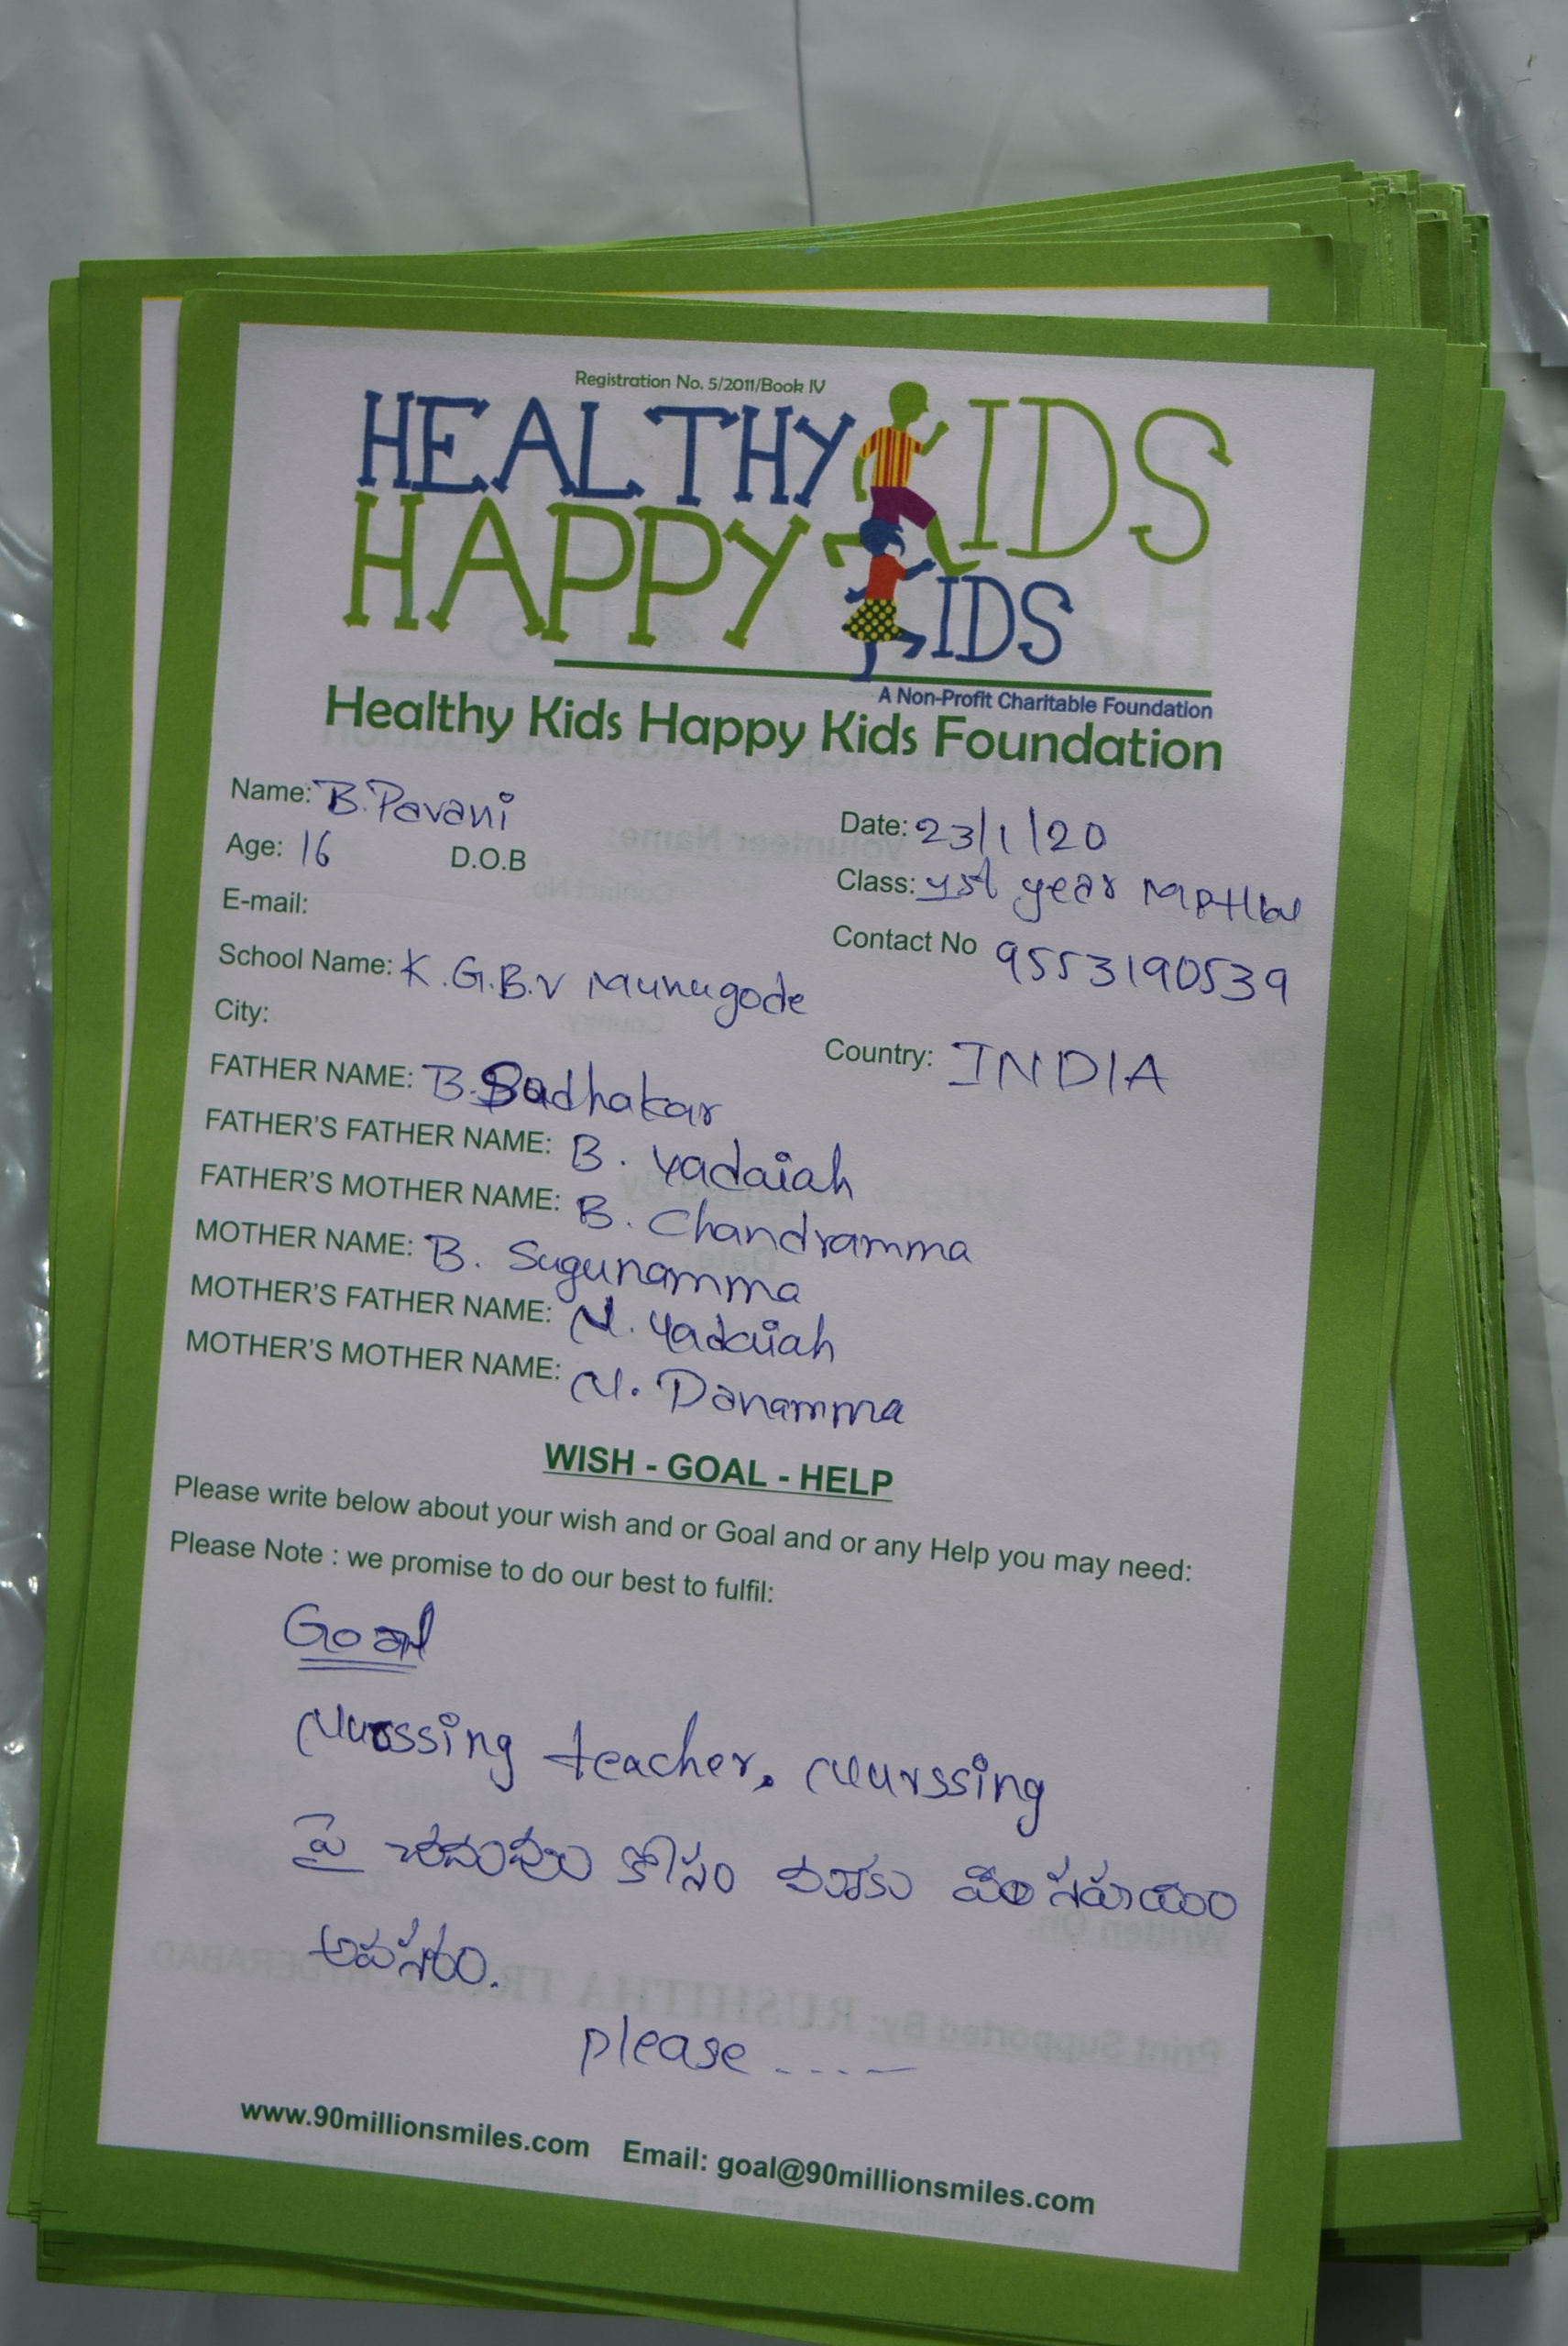 Registration No. 5/2011/Book IV
HEALTHY KIDS
HAPPY KIDS
A Non-Profit Charitable Foundation
Healthy Kids Happy Kids Foundation
Name: B.Pavani
Date: 23/1/20
Age: 16 D.O.B
Class: 1st year
E-mail:
Contact No 9553190539
School Name: K.G.B.V Munugode
City:
Country: INDIA
FATHER NAME: B.Sudhakar
FATHER'S FATHER NAME: B. Yadaiah
FATHER'S MOTHER NAME: B. Chandramma
MOTHER NAME: B. Sugunamma
MOTHER'S FATHER NAME: N. Yadaiah
MOTHER'S MOTHER NAME: N. Danamma
WISH - GOAL - HELP
Please write below about your wish and or Goal and or any Help you may need:
Please Note : we promise to do our best to fulfil:
Goal
Nurssing teacher, Nurssing
పై చదువుల కోసం మాకు మీ సహాయం
అవసరం.
please ----
www.90millionsmiles.com Email: goal@90millionsmiles.com